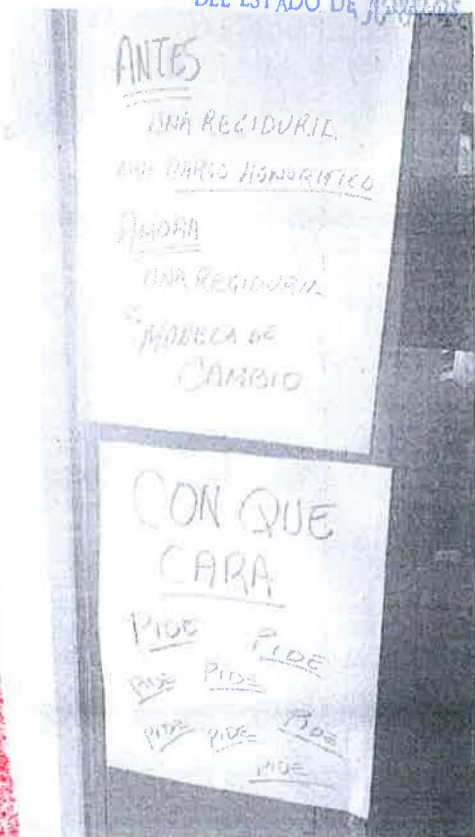 DEL ESTADO DE
ANTES
UNA REGIDURIA
CARGO HONORIFICO
AHORA
UNA REGIDURIA
MANERA DE
CAMBIO
CON QUE
CARA
PIDE PIDE
PIDE PIDE
PIDE PIDE PIDE
PIDE